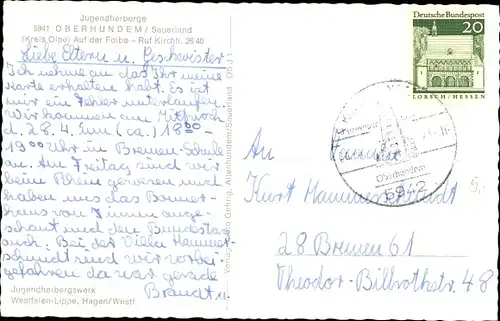 Jugendherberge
5941 OBERHUNDEM / Sauerland
(Kreis Olpe) Auf der Foibe - Ruf Kirchh. 26 40
Liebe Eltern u. Geschwister
Ich nehme an das Ihr meine
Karte erhalten habt. Es ist
mir ein Fehler unterlaufen.
Wir kommen am Mittwoch
d. 28. 4. (ca.) 18 00 -
19 00 Uhr in Bremen-Schule
an. Am Freitag sind wir
beim Rhein gewesen und
haben uns das
haus von innen ange-
schaut und den Bundestag
auch. Bei der Villa Hammer-
schmidt sind wir vorbei-
gefahren da war gerade
Brandt u.
Jugendherbergswerk
Westfalen-Lippe, Hagen/Westf
Deutsche Bundespost
20
LORSCH/HESSEN
Oberhundem
5942
An Familie
Kurt Hammerschmidt
28 Bremen 61
Theodor-Billrothstr. 48